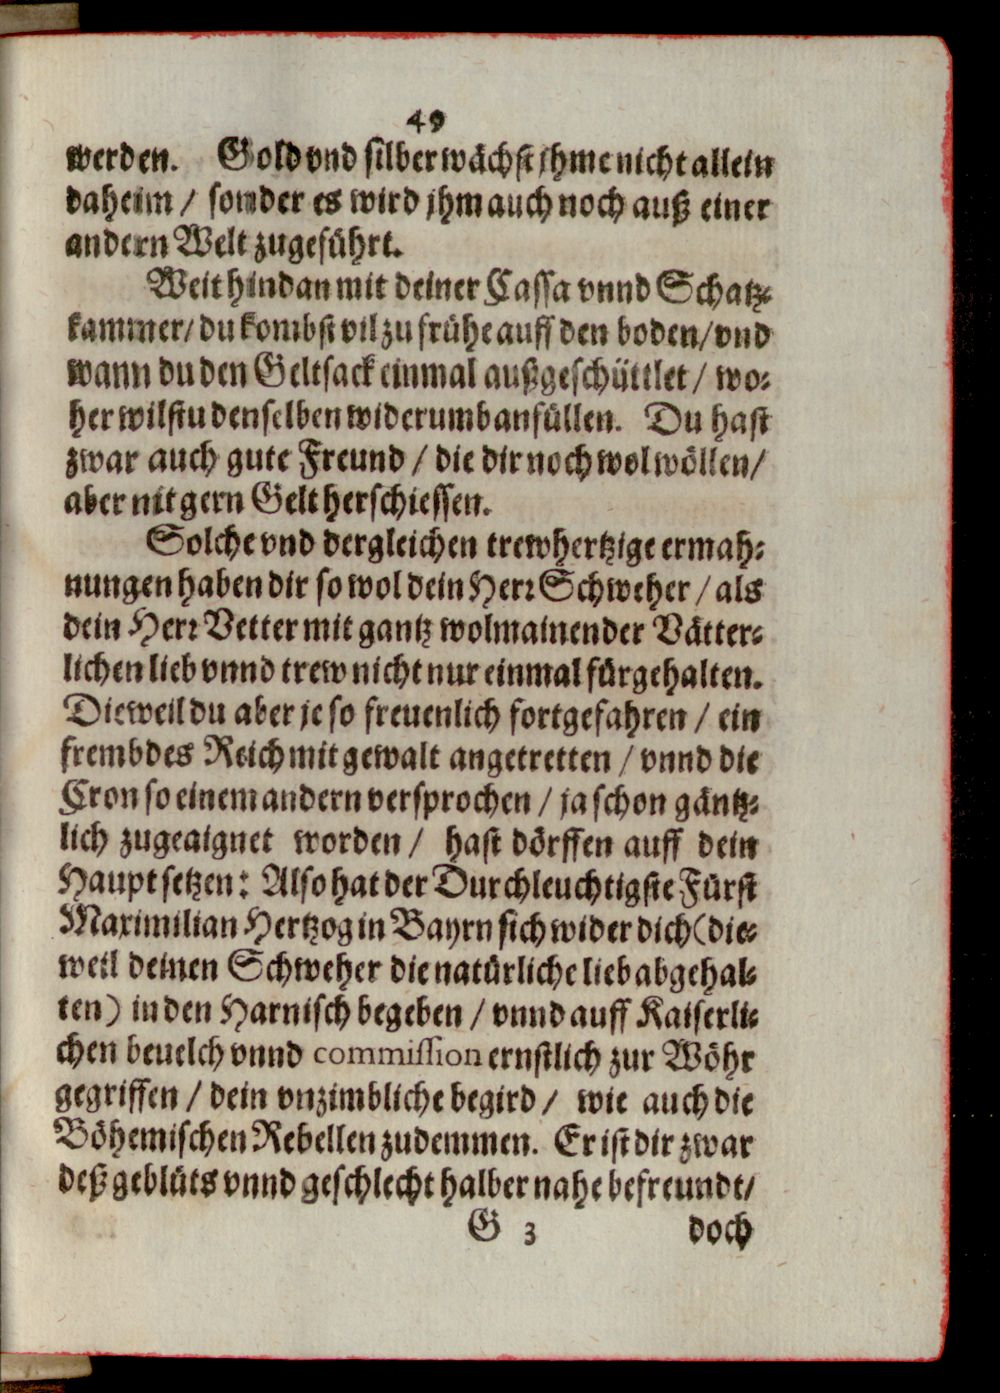 49
werden. Gold vnd silber wächst jhme nicht allein
daheim / sonder es wird jhm auch noch auß einer
andern Welt zugeführt.
Weit hindan mit deiner Cassa vnnd Schatz-
kammer / du kombst vil zu frühe auff den boden / vnd
wann du den Geltsack einmal außgeschüttlet / wo-
her wilstu denselben widerumb anfüllen. Du hast
zwar auch gute Freund / die dir noch wol wöllen /
aber nit gern Gelt herschiessen.
Solche vnd dergleichen trewhertzige ermah-
nungen haben dir so wol dein Herr Schweher / als
dein Herr Vetter mit gantz wolmainender Vätter-
lichen lieb vnnd trew nicht nur einmal fürgehalten.
Dieweil du aber je so freuenlich fortgefahren / ein
frembdes Reich mit gewalt angetretten / vnnd die
Cron so einem andern versprochen / ja schon gäntz-
lich zugeaignet worden / hast dörffen auff dein
Haupt setzen: Also hat der Durchleuchtigste Fürst
Maximilian Hertzog in Bayrn sich wider dich (die-
weil deinen Schweher die natürliche lieb abgehal-
ten) in den Harnisch begeben / vnnd auff Kaiserli-
chen beuelch vnnd commission ernstlich zur Wöhr
gegriffen / dein vnzimbliche begird / wie auch die
Böhemischen Rebellen zudemmen. Er ist dir zwar
deß geblüts vnnd geschlecht halber nahe befreundt /
G 3 doch